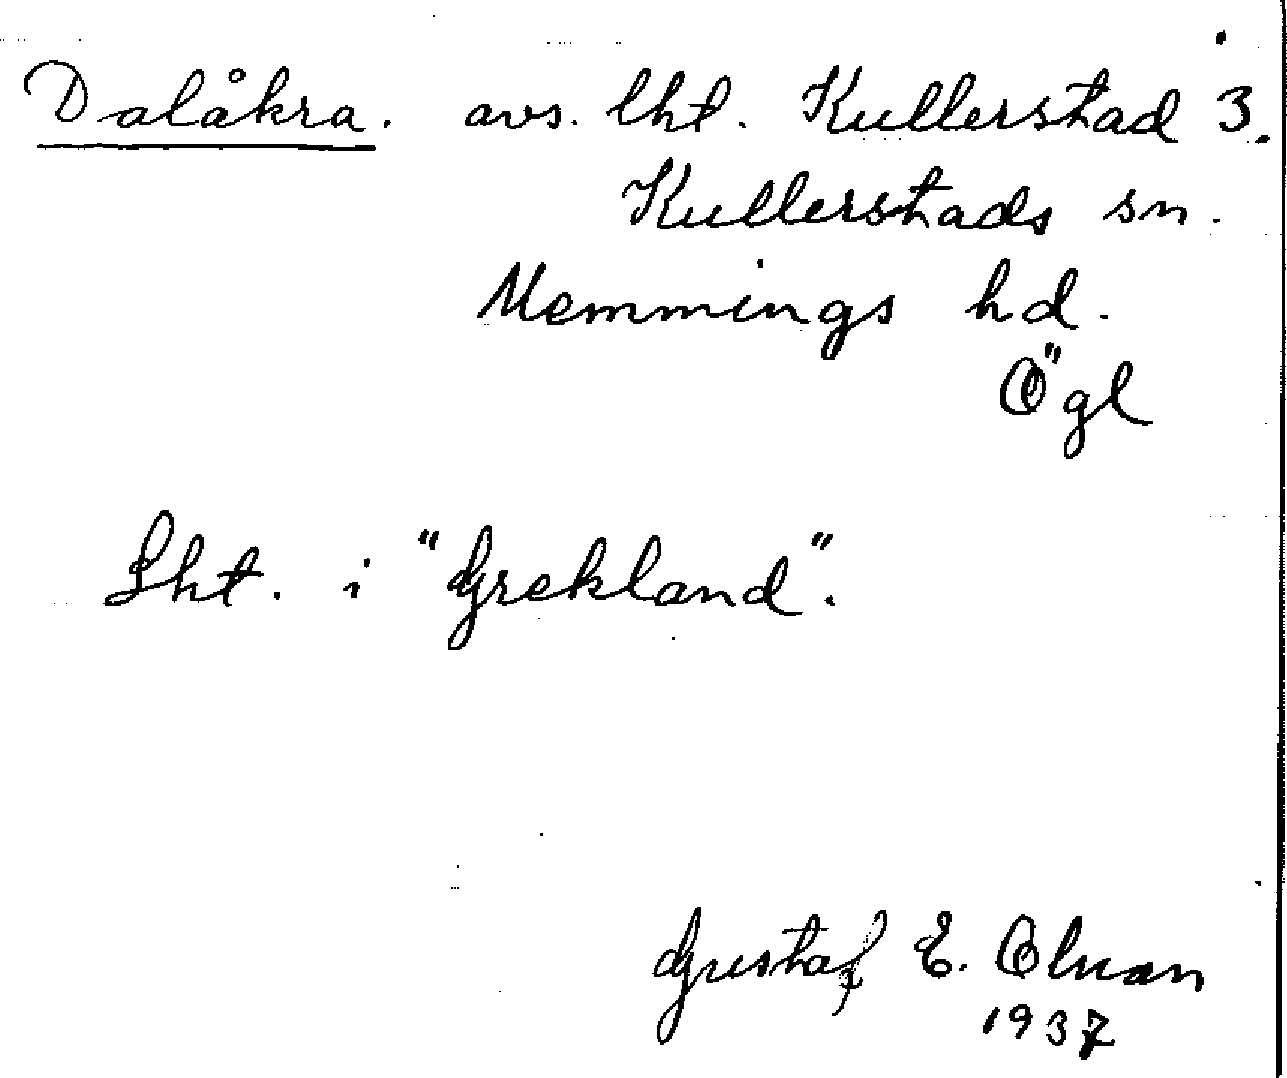 Dalåkra. avs. lht. Kullerstad 3.
Kullerstads sn.
Memmings hd.
Ögl
Lht. i "Grekland".
Gustaf E. Olsson
1937